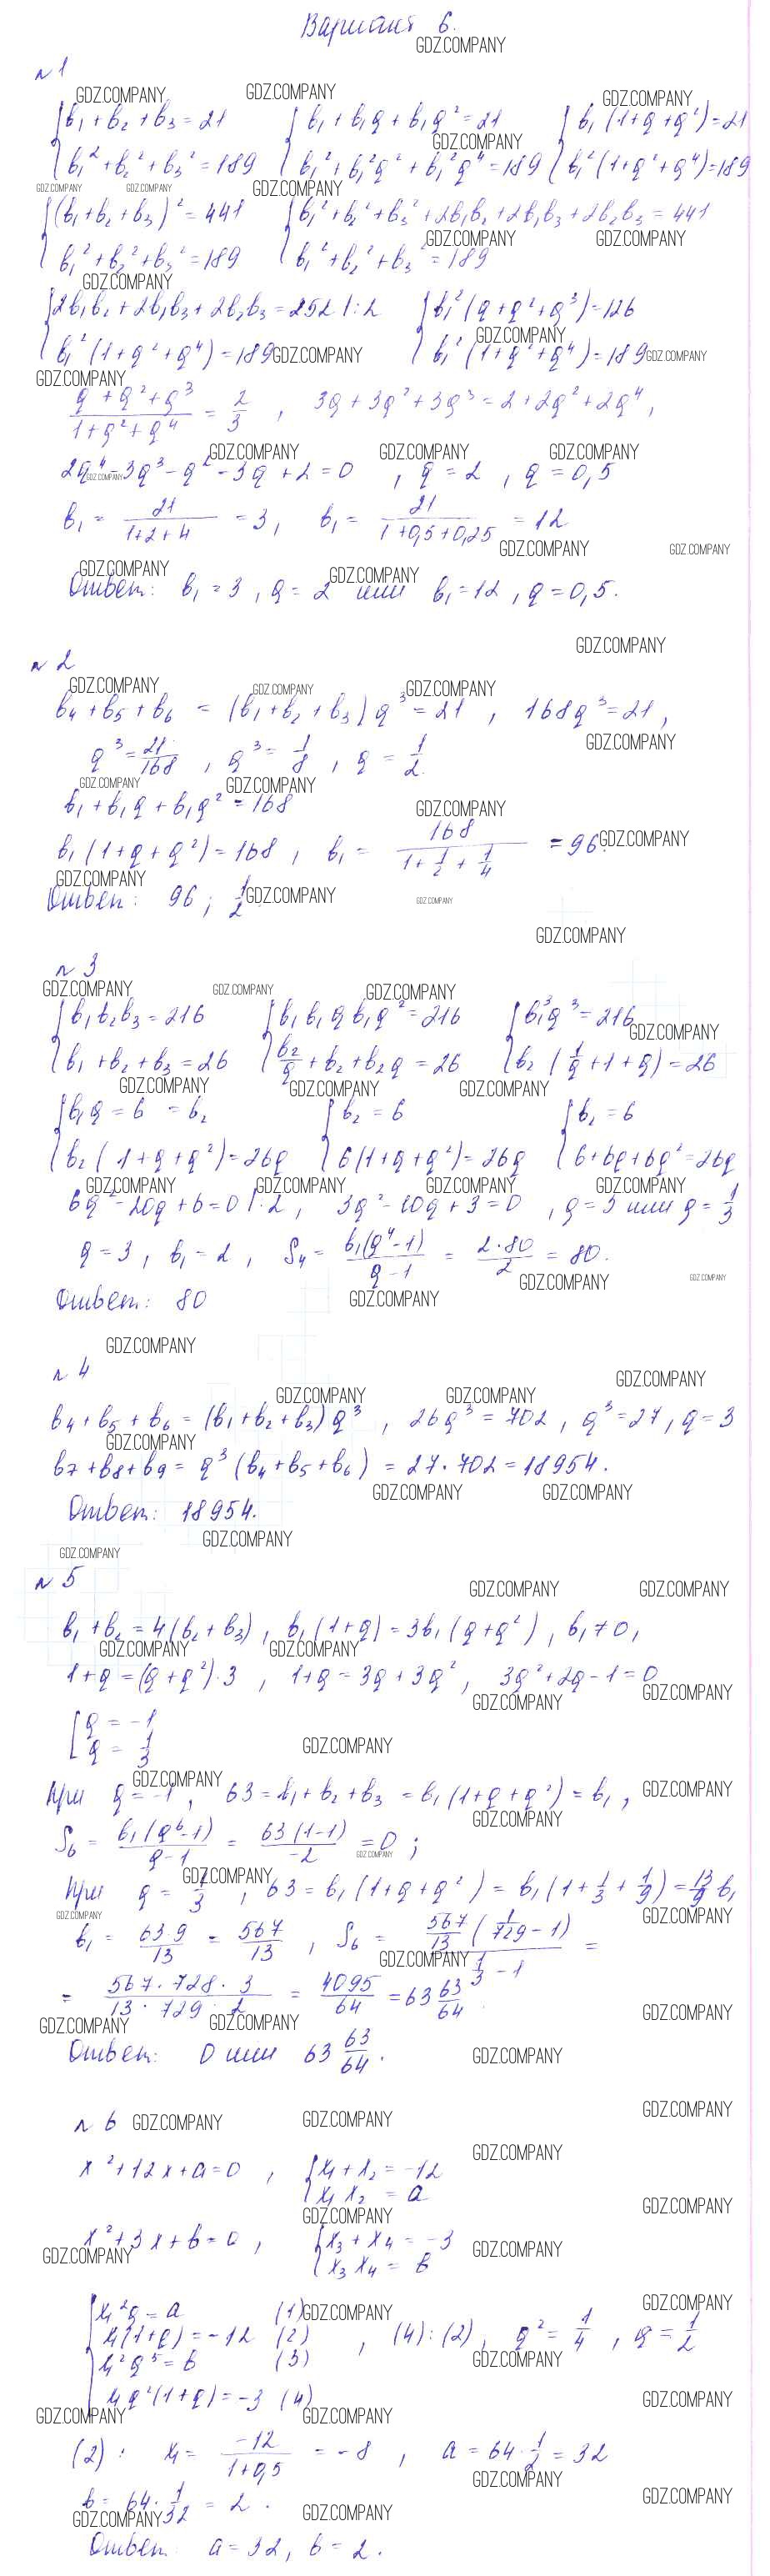 Вариант 6.
GDZ.COMPANY
n 1
b₁ + b₂ + b₃ = 21   b₁ + b₁q + b₁q² = 21   b₁(1+q+q²) = 21
b₁² + b₂² + b₃² = 189   b₁² + b₁²q² + b₁²q⁴ = 189   b₁²(1+q²+q⁴) = 189
(b₁+b₂+b₃)² = 441   b₁² + b₂² + b₃² + 2b₁b₂ + 2b₁b₃ + 2b₂b₃ = 441
b₁² + b₂² + b₃² = 189   b₁² + b₂² + b₃² = 189
2b₁b₂ + 2b₁b₃ + 2b₂b₃ = 252 |:2   b₁²(q+q²+q³) = 126
b₁²(1+q²+q⁴) = 189   b₁²(1+q²+q⁴) = 189
(q+q²+q³)/(1+q²+q⁴) = 2/3 , 3q+3q²+3q³ = 2+2q²+2q⁴,
2q⁴ - 3q³ - q² - 3q + 2 = 0 , q = 2 , q = 0,5
b₁ = 21/(1+2+4) = 3, b₁ = 21/(1+0,5+0,25) = 12
Ответ: b₁ = 3 , q = 2 или b₁ = 12 , q = 0,5.
n 2
b₄ + b₅ + b₆ = (b₁+b₂+b₃) q³ = 21 , 168q³ = 21,
q³ = 21/168 , q³ = 1/8 , q = 1/2.
b₁ + b₁q + b₁q² = 168
b₁(1+q+q²) = 168 , b₁ = 168/(1+1/2+1/4) = 96.
Ответ: 96 ; 1/2
n 3
b₁b₂b₃ = 216   b₁ b₁q b₁q² = 216   b₁³q³ = 216
b₁ + b₂ + b₃ = 26   b₂/q + b₂ + b₂q = 26   b₂(1/q + 1 + q) = 26
b₁q = 6 = b₂   b₂ = 6   b₂ = 6
b₂(1+q+q²) = 26q   6(1+q+q²) = 26q   6+6q+6q² = 26q
6q² - 20q + 6 = 0 |:2, 3q² - 10q + 3 = 0 , q = 3 или q = 1/3
q = 3 , b₁ = 2 , S₄ = b₁(q⁴-1)/(q-1) = 2·80/2 = 80.
Ответ: 80
n 4
b₄ + b₅ + b₆ = (b₁+b₂+b₃) q³ , 26q³ = 702 , q³ = 27 , q = 3
b₇ + b₈ + b₉ = q³(b₄+b₅+b₆) = 27·702 = 18954.
Ответ: 18954.
n 5
b₁ + b₂ = 4(b₂+b₃) , b₁(1+q) = 3b₁(q+q²) , b₁ ≠ 0,
1+q = (q+q²)·3 , 1+q = 3q+3q² , 3q²+2q-1 = 0
q = -1
q = 1/3
При q = -1 , 63 = b₁+b₂+b₃ = b₁(1+q+q²) = b₁ ,
S₆ = b₁(q⁶-1)/(q-1) = 63(1-1)/(-2) = 0 ;
При q = 1/3 , 63 = b₁(1+q+q²) = b₁(1+1/3+1/9) = 13/9 b₁
b₁ = 63·9/13 = 567/13 , S₆ = 567/13 (1/729 - 1)/(1/3 - 1) =
= 567·728·3/(13·729·2) = 4095/64 = 63 63/64.
Ответ: 0 или 63 63/64.
n 6
x² + 12x + a = 0 , x₁ + x₂ = -12
x₁x₂ = a
x² + 3x + b = 0 , x₃ + x₄ = -3
x₃x₄ = b
x₁²q = a (1)
x₁(1+q) = -12 (2) , (4):(2), q² = 1/4 , q = 1/2
x₁²q⁵ = b (3)
x₁q²(1+q) = -3 (4)
(2) : x₁ = -12/(1+0,5) = -8 , a = 64·1/2 = 32
b = 64·1/32 = 2.
Ответ: a = 32, b = 2.